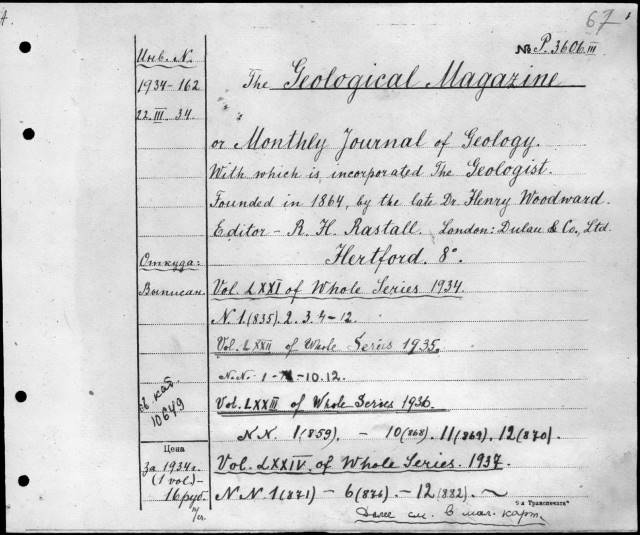 67
№ P. 3606 III
Инв. N.
1934-162
22.III.34.
The Geological Magazine
or Monthly Journal of Geology.
With which is incorporated The Geologist.
Founded in 1864, by the late Dr. Henry Woodward.
Editor - R. H. Rastall. London: Dulau & Co., Ltd.
Hertford. 8°.
Откуда:
Выписан.
Vol. LXXI of Whole Series 1934.
N. 1 (835). 2. 3. 4-12.
Vol. LXXII of Whole Series 1935.
N.N. 1 - 10. 12.
Vol. LXXIII of Whole Series 1936.
N.N. 1 (859). - 10 (868). 11 (869). 12 (870).
в каб.
10649
Цена
за 1934 г.
(1 vol.) -
16 руб.
Vol. LXXIV. of Whole Series. 1937.
N N. 1 (871) - 6 (876). - 12 (882). ~
Далее см. в маг. карт.